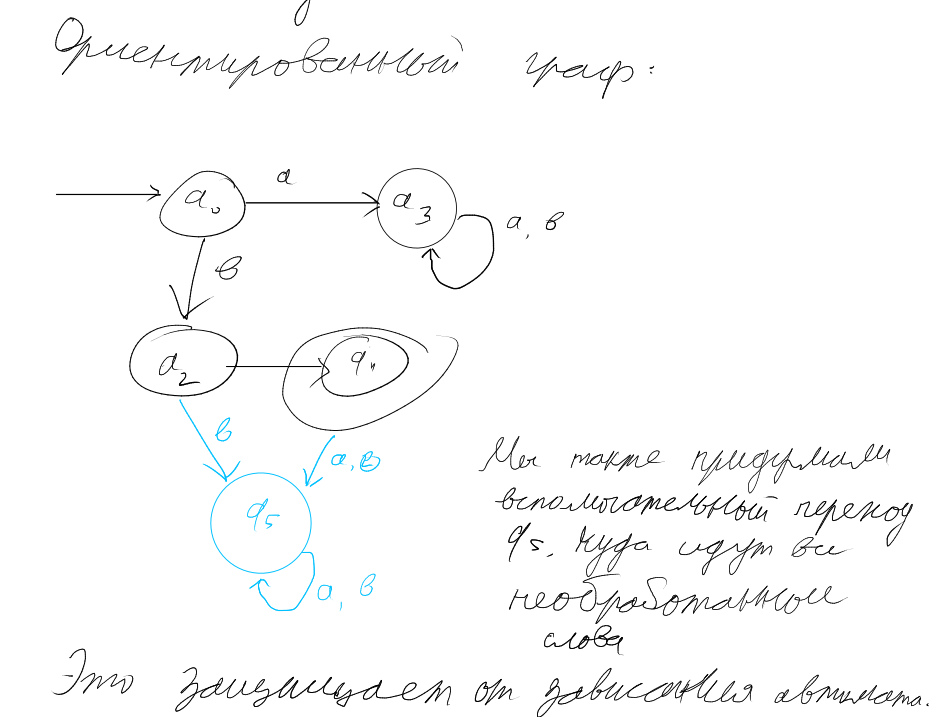 Ориентированный граф:
a
q₀
q₃
a, в
в
q₂
q₄
в
a, в
q₅
a, в
Мы также придумали
вспомогательный переход
q₅, куда идут все
необработанные
слова
Это защищает от зависания автомата.